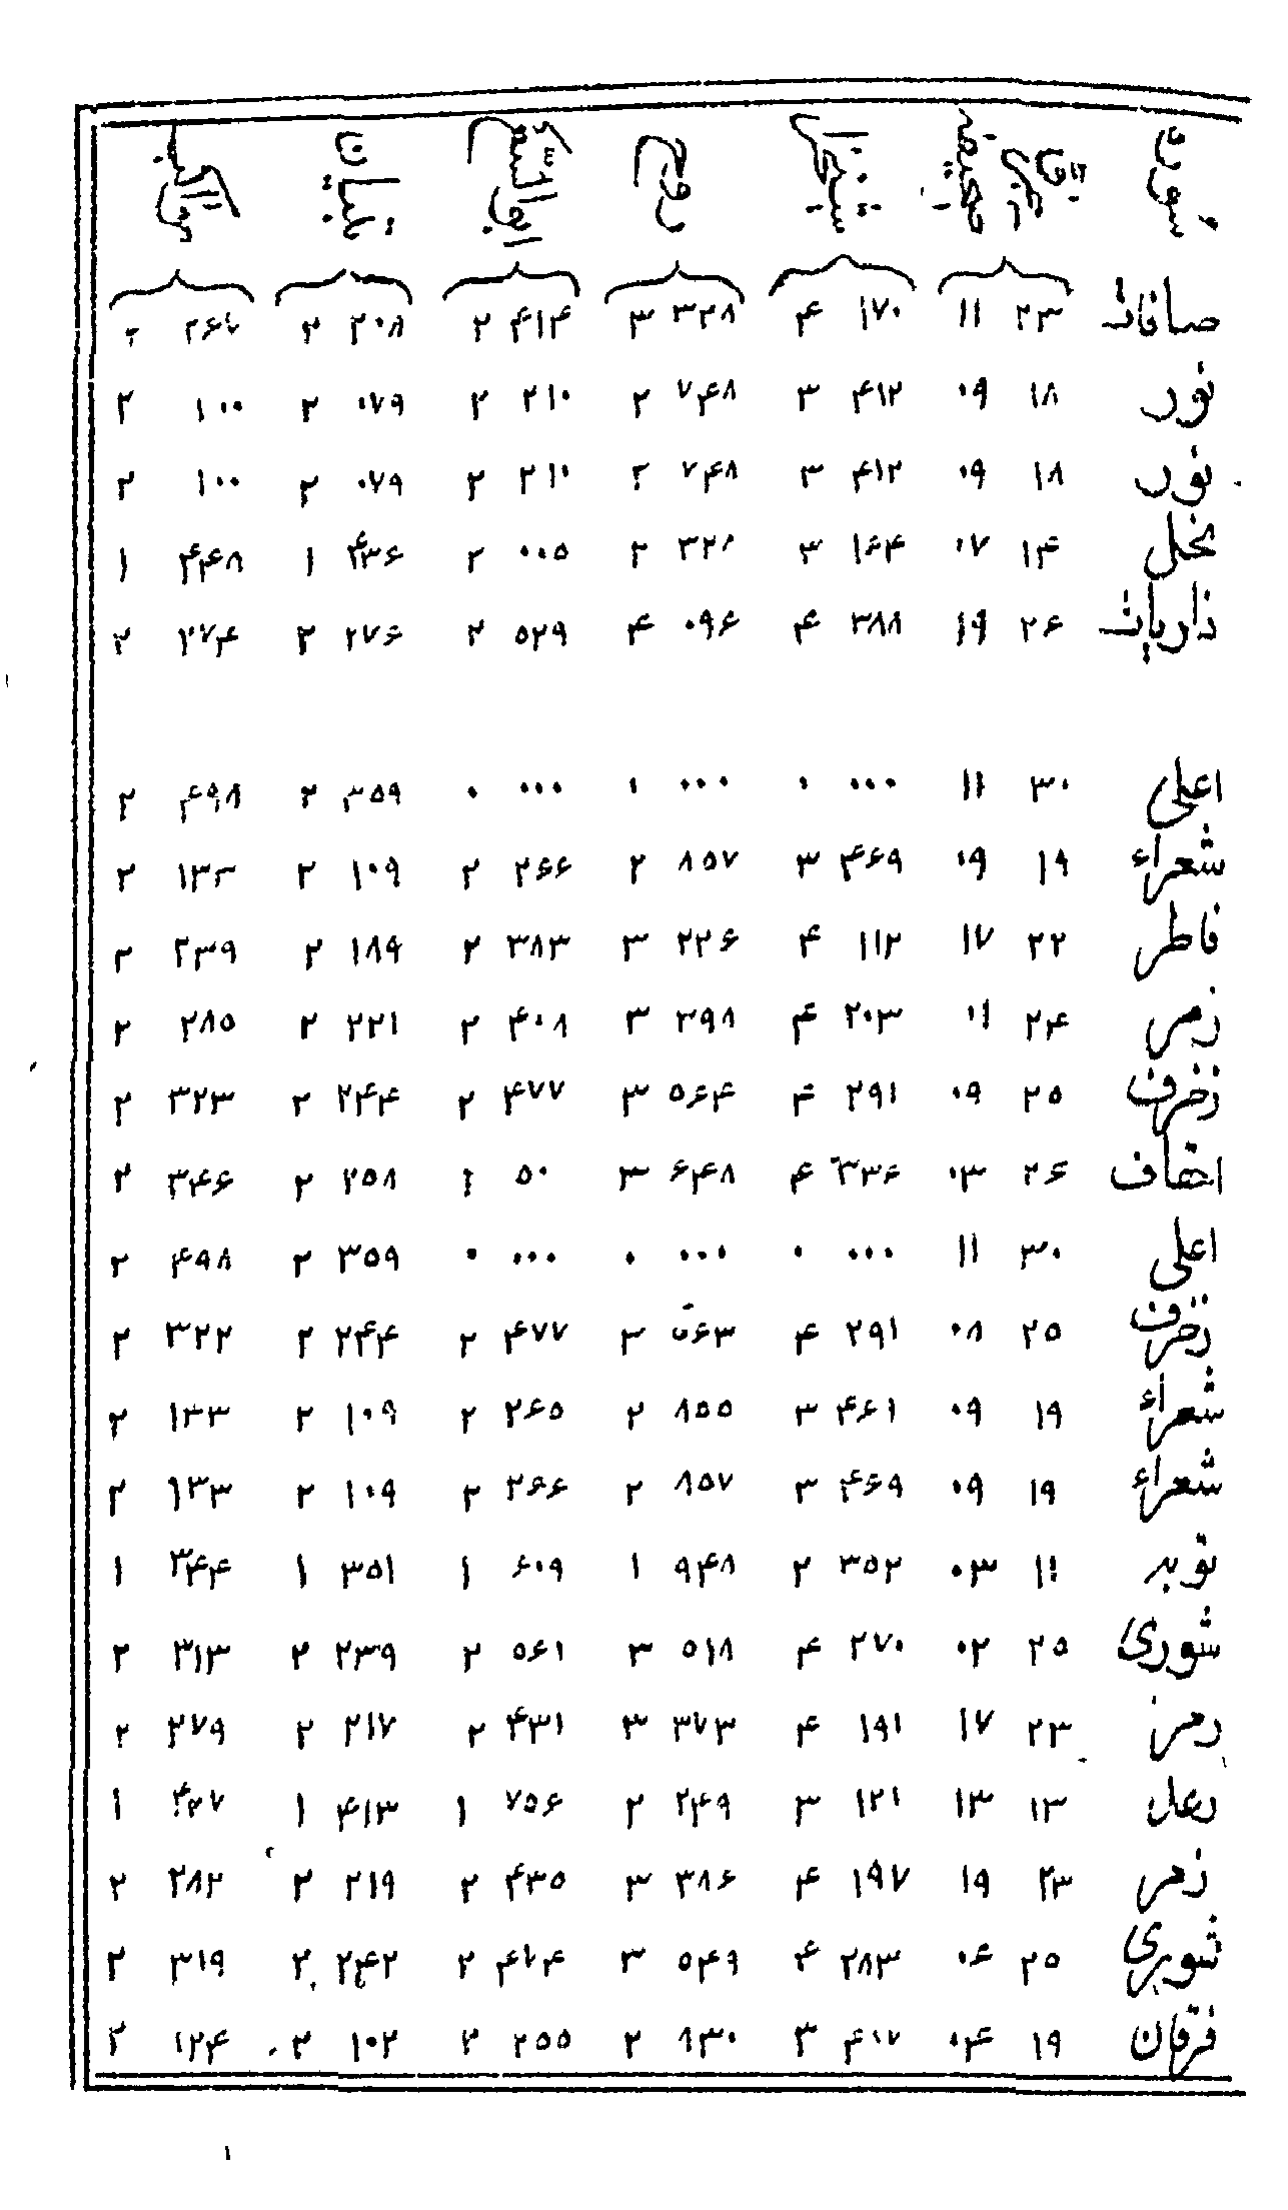 سوره
صافات ۲۳ ۱۱ ۱۷۰ ۴ ۳۲۸ ۳ ۴۱۴ ۲ ۲۰۸ ۲ ۲۶۷ ۲
نور ۱۸ ۰۹ ۴۱۲ ۳ ۷۴۸ ۲ ۲۱۰ ۲ ۰۷۹ ۲ ۱۰۰ ۲
نور ۱۸ ۰۹ ۴۱۲ ۳ ۷۴۸ ۲ ۲۱۰ ۲ ۰۷۹ ۲ ۱۰۰ ۲
نحل ۱۴ ۰۷ ۱۶۴ ۳ ۳۲۸ ۲ ۰۰۵ ۲ ۴۳۶ ۱ ۴۴۸ ۱
ذاریات ۲۶ ۱۹ ۳۸۸ ۴ ۰۹۶ ۴ ۵۲۹ ۲ ۲۷۶ ۲ ۲۷۴ ۲
اعلی ۳۰ ۱۱ ۰۰۰ ۰ ۰۰۰ ۰ ۰۰۰ ۰ ۳۵۹ ۲ ۴۹۸ ۲
شعراء ۱۹ ۰۹ ۴۶۹ ۳ ۸۵۷ ۲ ۲۶۶ ۲ ۱۰۹ ۲ ۱۳۳ ۲
فاطر ۲۲ ۱۷ ۱۱۲ ۴ ۲۲۶ ۳ ۳۸۳ ۲ ۱۸۹ ۲ ۲۳۹ ۲
زمر ۲۴ ۰۱ ۲۰۳ ۴ ۳۹۸ ۳ ۴۰۸ ۲ ۲۲۱ ۲ ۲۸۵ ۲
زخرف ۲۵ ۰۹ ۲۹۱ ۴ ۵۶۴ ۳ ۴۷۷ ۲ ۲۴۴ ۲ ۳۲۳ ۲
احقاف ۲۶ ۰۳ ۳۳۶ ۴ ۶۴۸ ۳ ۵۰ ۲۵۸ ۲ ۳۴۶ ۲
اعلی ۳۰ ۱۱ ۰۰۰ ۰ ۰۰۰ ۰ ۰۰۰ ۰ ۳۵۹ ۲ ۴۹۸ ۲
زخرف ۲۵ ۰۸ ۲۹۱ ۴ ۵۶۳ ۳ ۴۷۷ ۲ ۲۴۴ ۲ ۳۲۲ ۲
شعراء ۱۹ ۰۹ ۴۶۱ ۳ ۸۵۵ ۲ ۲۶۵ ۲ ۱۰۹ ۲ ۱۳۳ ۲
شعراء ۱۹ ۰۹ ۴۶۹ ۳ ۸۵۷ ۲ ۲۶۶ ۲ ۱۰۹ ۲ ۱۳۳ ۲
توبه ۱۱ ۰۳ ۳۵۲ ۲ ۹۴۸ ۱ ۶۰۹ ۱ ۳۵۱ ۱ ۳۴۴ ۱
شوری ۲۵ ۰۲ ۲۷۰ ۴ ۵۱۸ ۳ ۵۶۱ ۲ ۲۳۹ ۲ ۳۱۳ ۲
زمر ۲۳ ۱۷ ۱۹۱ ۴ ۳۷۳ ۳ ۴۳۱ ۲ ۲۱۷ ۲ ۲۷۹ ۲
رعد ۱۳ ۱۳ ۱۲۱ ۳ ۲۴۹ ۲ ۷۵۶ ۱ ۴۱۳ ۱ ۴۲۷ ۱
زمر ۲۳ ۱۹ ۱۹۷ ۴ ۳۸۶ ۳ ۴۳۵ ۲ ۲۱۹ ۲ ۲۸۲ ۲
شوری ۲۵ ۰۶ ۲۸۳ ۴ ۵۴۹ ۳ ۴۷۴ ۲ ۲۴۲ ۲ ۳۱۹ ۲
فرقان ۱۹ ۰۴ ۴۱۷ ۳ ۸۳۰ ۲ ۲۵۵ ۲ ۱۰۲ ۲ ۱۲۴ ۲